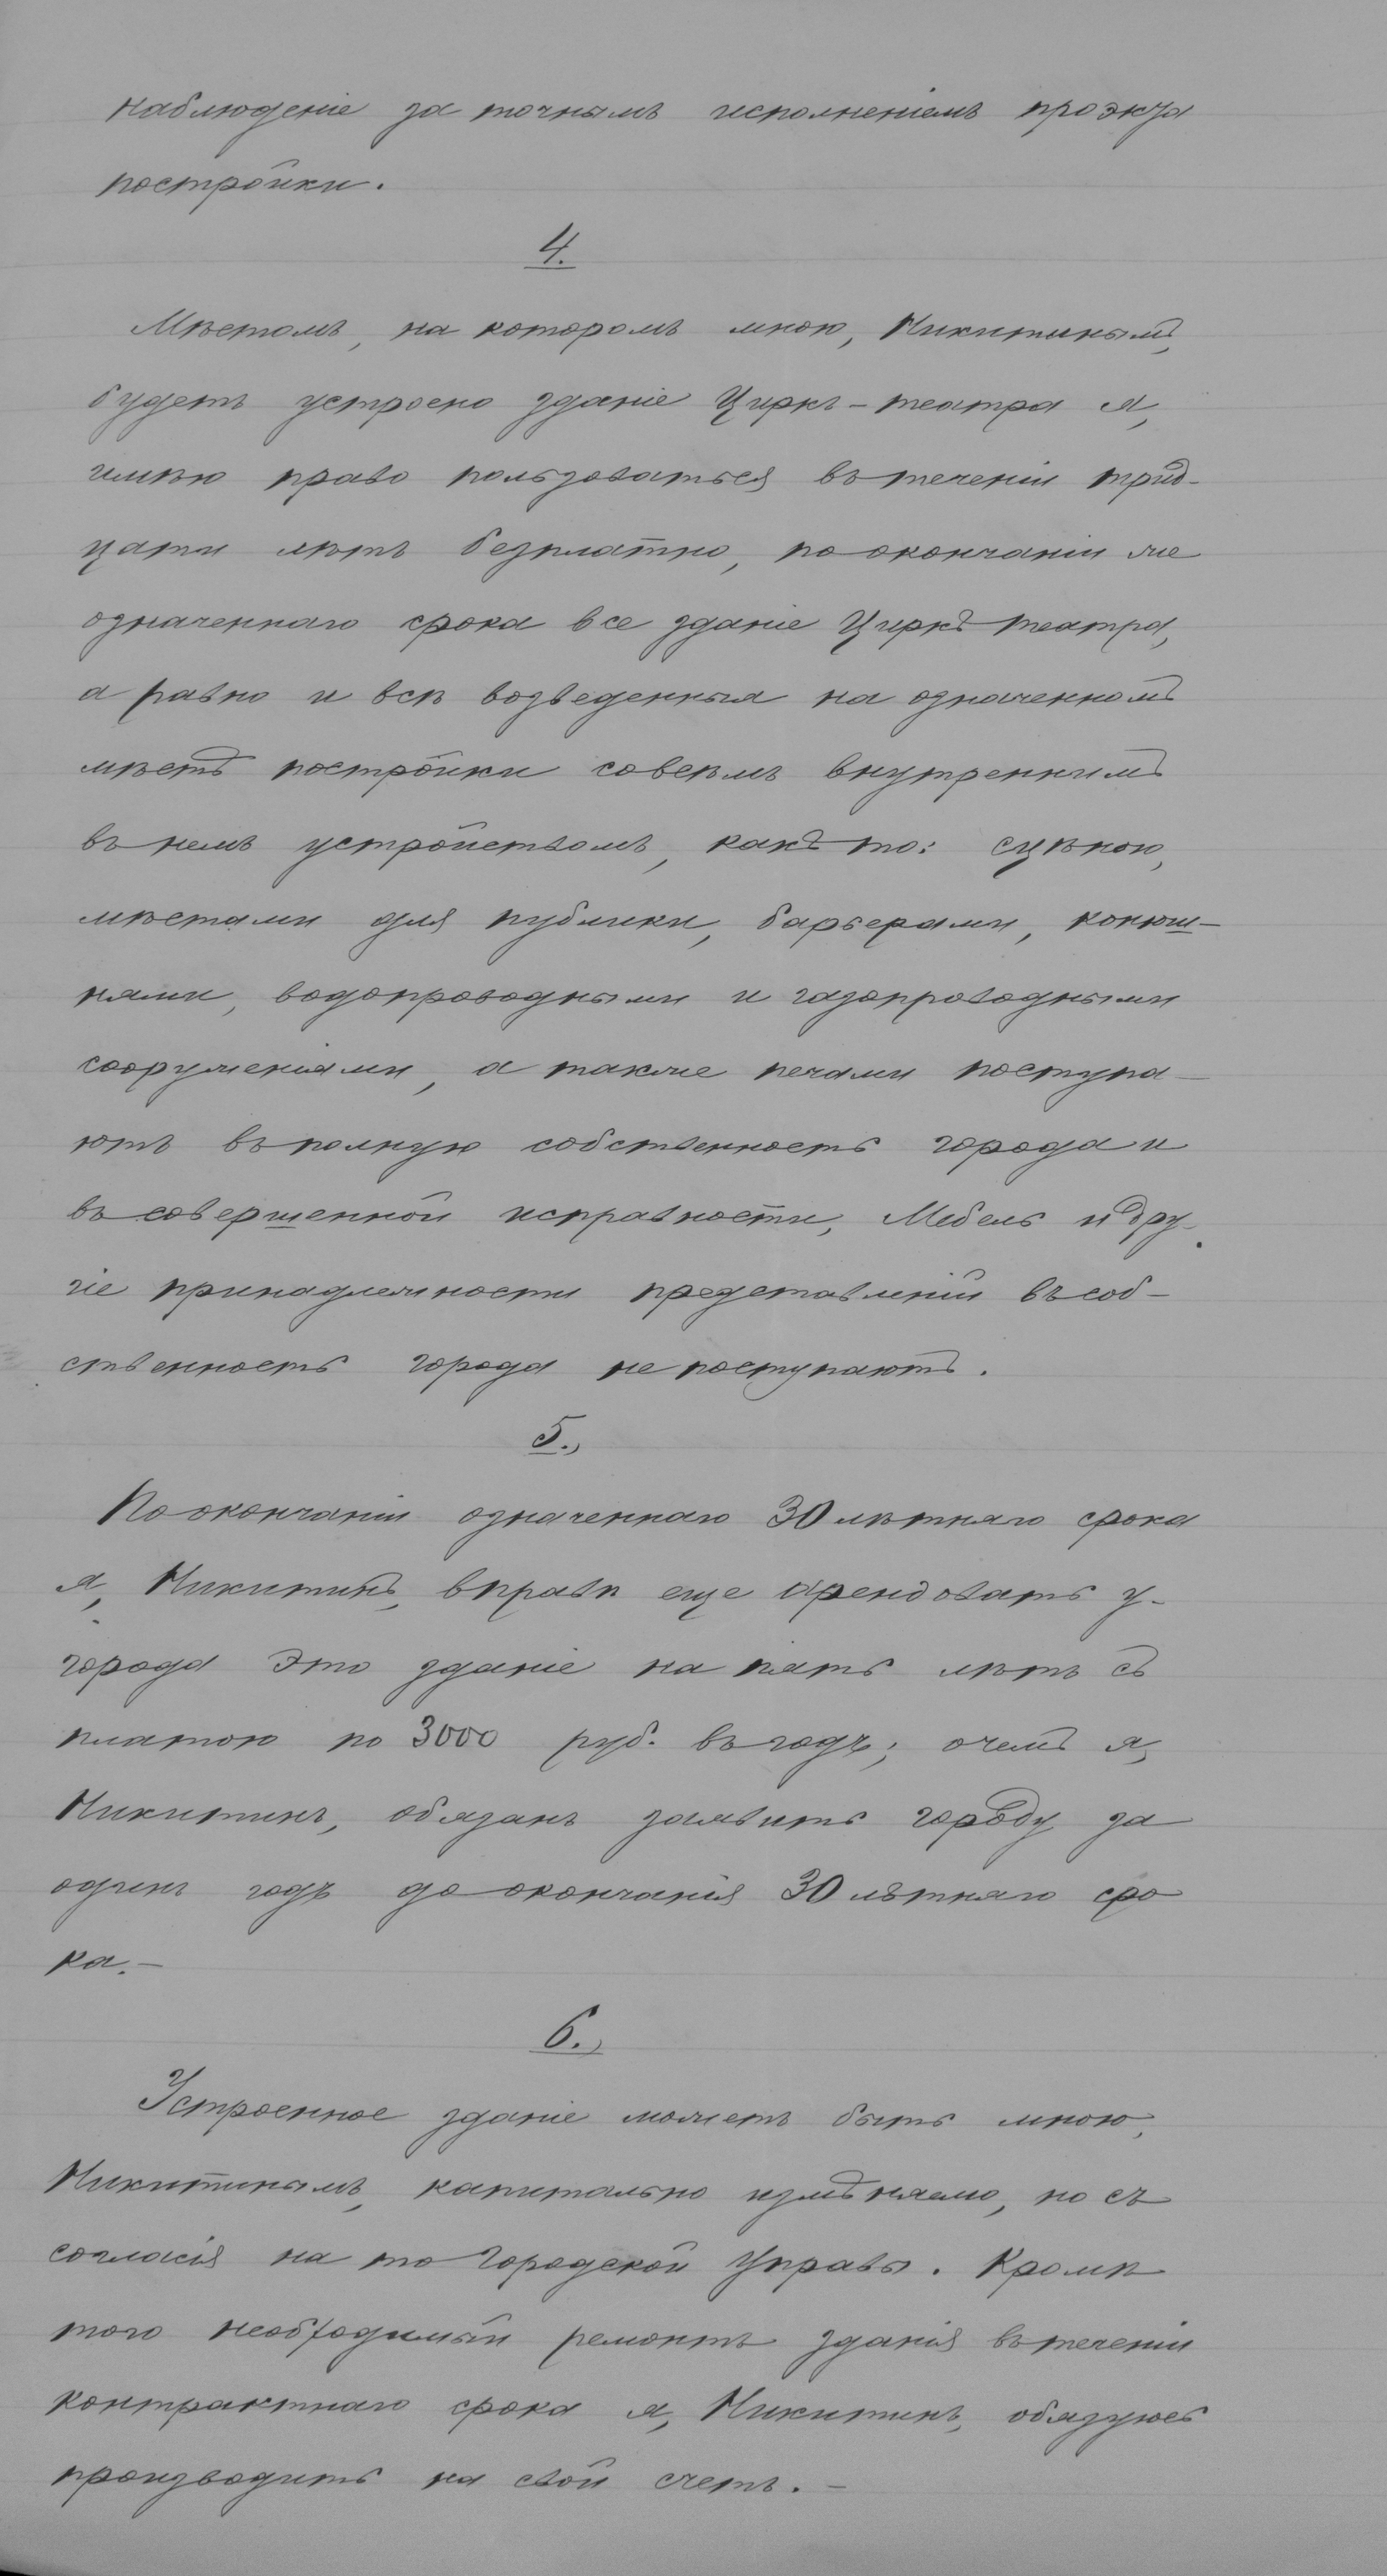 наблюденіе за точнымъ исполненіемъ проэкта
постройки.
4.
Мѣстомъ, на которомъ мною, Никитинымъ,
будетъ устроено зданіе Циркъ-театра я,
имѣю право пользоваться въ теченіи трид-
цати лѣтъ безплатно, по окончаніи же
означеннаго срока все зданіе Циркъ театра,
а равно и всѣ возведенныя на означенномъ
мѣстѣ постройки совсѣмъ внутреннимъ
въ немъ устройствомъ, какъ то: сценою,
мѣстами для публики, барьерами, конюш-
нями, водопроводными и газопроводными
сооруженіями, а также печами поступа-
ютъ въ полную собственность города и
въ совершенной исправности, Мебель и дру-
гіе принадлежности представленій въ соб-
ственность города не поступаютъ.
5.,
По окончаніи означеннаго 30 лѣтняго срока
я, Никитинъ, вправѣ еще арендовать у-
города это зданіе на пять лѣтъ съ
платою по 3000 руб. въ годъ; о чемъ я,
Никитинъ, обязанъ заявить городу за
одинъ годъ до окончанія 30 лѣтняго сро
ка.-
6.,
Устроенное зданіе можетъ быть мною,
Никитинымъ, капитально измѣняемо, но съ
согласія на то Городской Управы. Кромѣ
того необходимый ремонтъ зданія въ теченіи
контрактнаго срока я, Никитинъ, обязуюсь
производить на свой счетъ.-